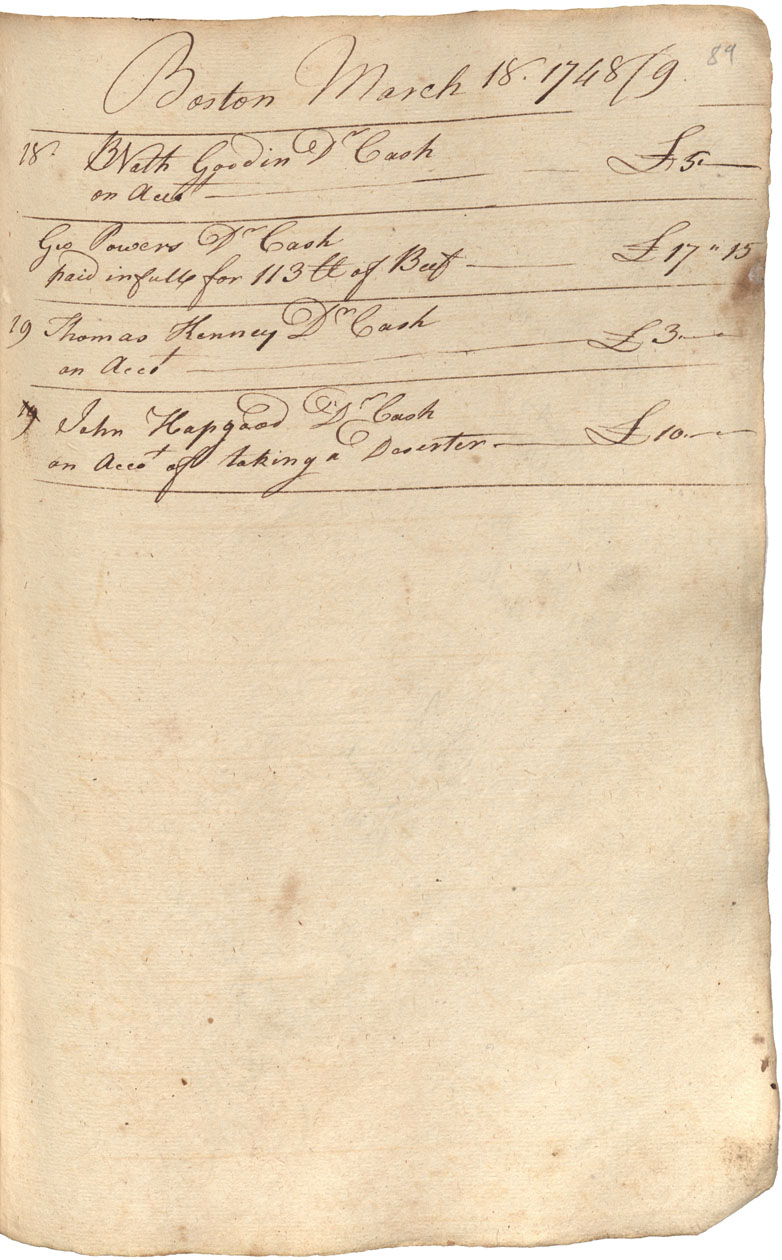 89
Boston March 18. 1748/9
18. Nath Goodin Dr Cash £5
on Accot
Geo Powers Dr Cash
paid in full for 113 ℔ of Beef £17 " 15
19 Thomas Kenney Dr Cash £3
on Accot
19 John Hapgood Dr Cash
on Accot of taking a Deserter £10